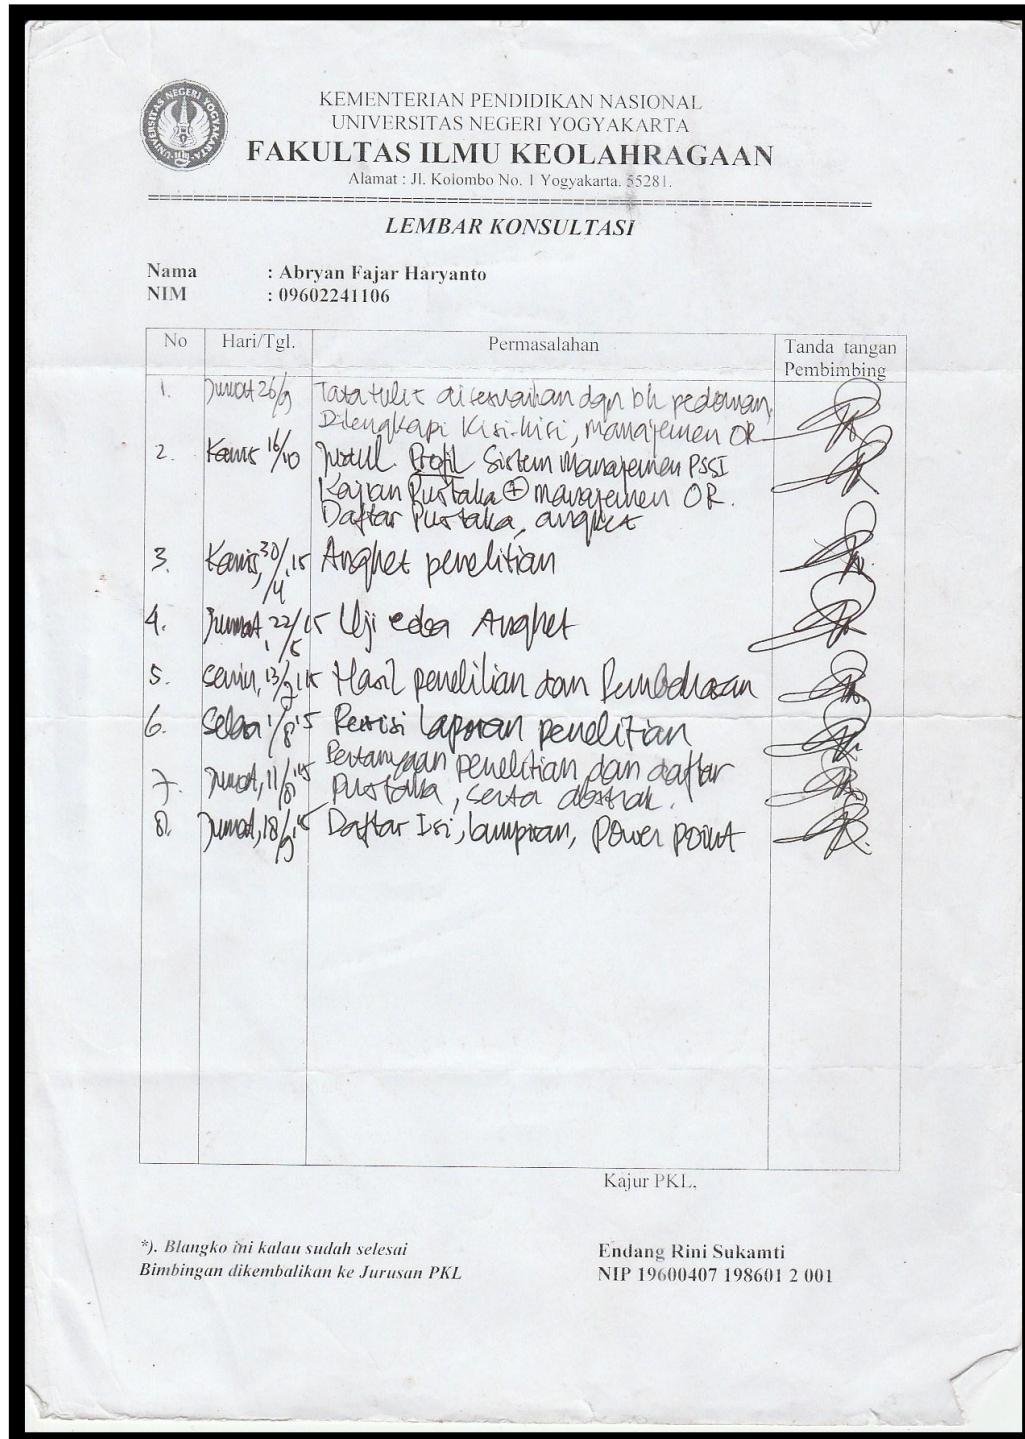 UNIVERSITAS NEGERI YOGYAKARTA
UNY
KEMENTERIAN PENDIDIKAN NASIONAL
UNIVERSITAS NEGERI YOGYAKARTA
FAKULTAS ILMU KEOLAHRAGAAN
Alamat : Jl. Kolombo No. 1 Yogyakarta. 55281.
LEMBAR KONSULTASI
Nama : Abryan Fajar Haryanto
NIM : 09602241106
No Hari/Tgl. Permasalahan Tanda tangan
Pembimbing
1. Jumat 26/9 Tata tulis disesuaikan dgn bk pedoman,
Dilengkapi Kisi-kisi, manajemen OR
2. Kamis 16/10 Judul Profil Sistem Manajemen PSSI
Kajian Pustaka + manajemen OR.
Daftar Pustaka, angket
3. Kamis, 30/4 '15 Angket penelitian
4. Jumat 22/5 15 Uji coba Angket
5. Senin, 13/ '15 Hasil penelitian dan Pembahasan
6. Selasa 1/8 '15 Revisi laporan penelitian
Pertanyaan penelitian dan daftar
7. Jumat, 11/ '15 Pustaka, serta abstrak.
8. Jumat, 18/9 '15 Daftar Isi, lampiran, power point
Kajur PKL,
*). Blangko ini kalau sudah selesai
Bimbingan dikembalikan ke Jurusan PKL
Endang Rini Sukamti
NIP 19600407 198601 2 001